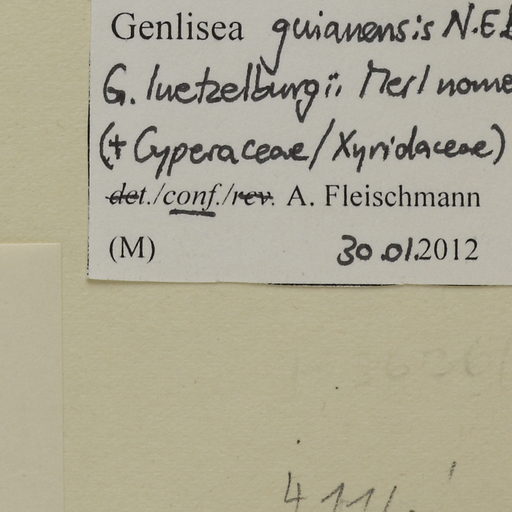 Genlisea guianensis N.E.
G. luetzelburgii Merl nome
(+ Cyperaceae/Xyridaceae)
det./conf./rev. A. Fleischmann
(M) 30.01.2012